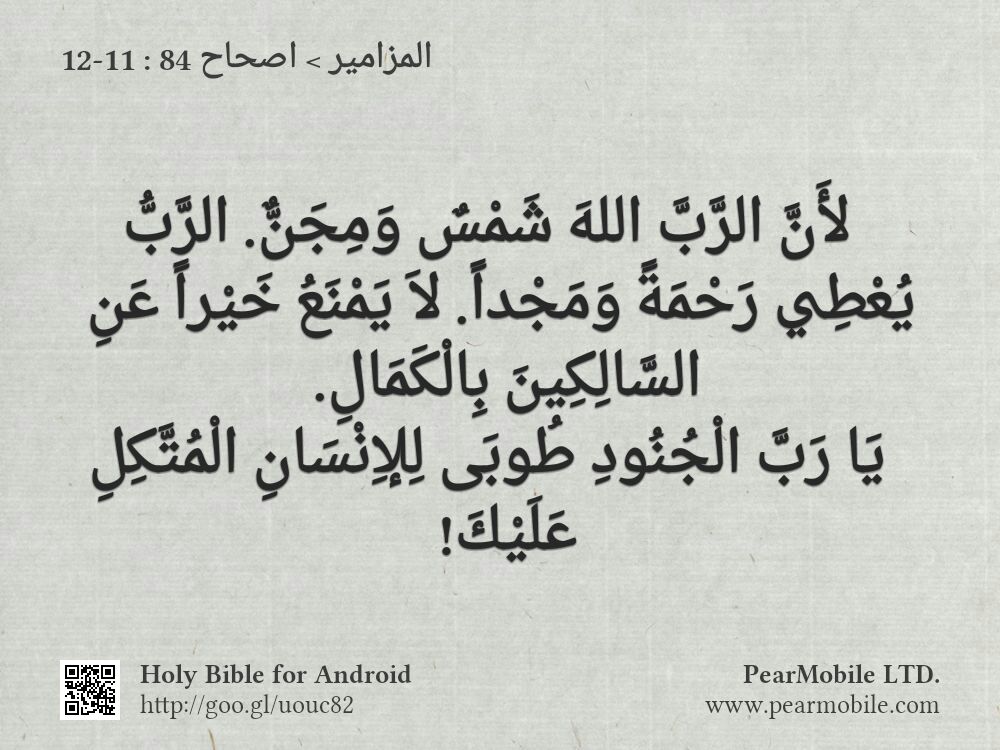 المزامير > اصحاح 84 : 11-12
لأَنَّ الرَّبَّ اللهَ شَمْسٌ وَمِجَنٌّ. الرَّبُّ
يُعْطِي رَحْمَةً وَمَجْداً. لاَ يَمْنَعُ خَيْراً عَنِ
السَّالِكِينَ بِالْكَمَالِ.
يَا رَبَّ الْجُنُودِ طُوبَى لِلإِنْسَانِ الْمُتَّكِلِ
عَلَيْكَ!
Holy Bible for Android
http://goo.gl/uouc82
PearMobile LTD.
www.pearmobile.com